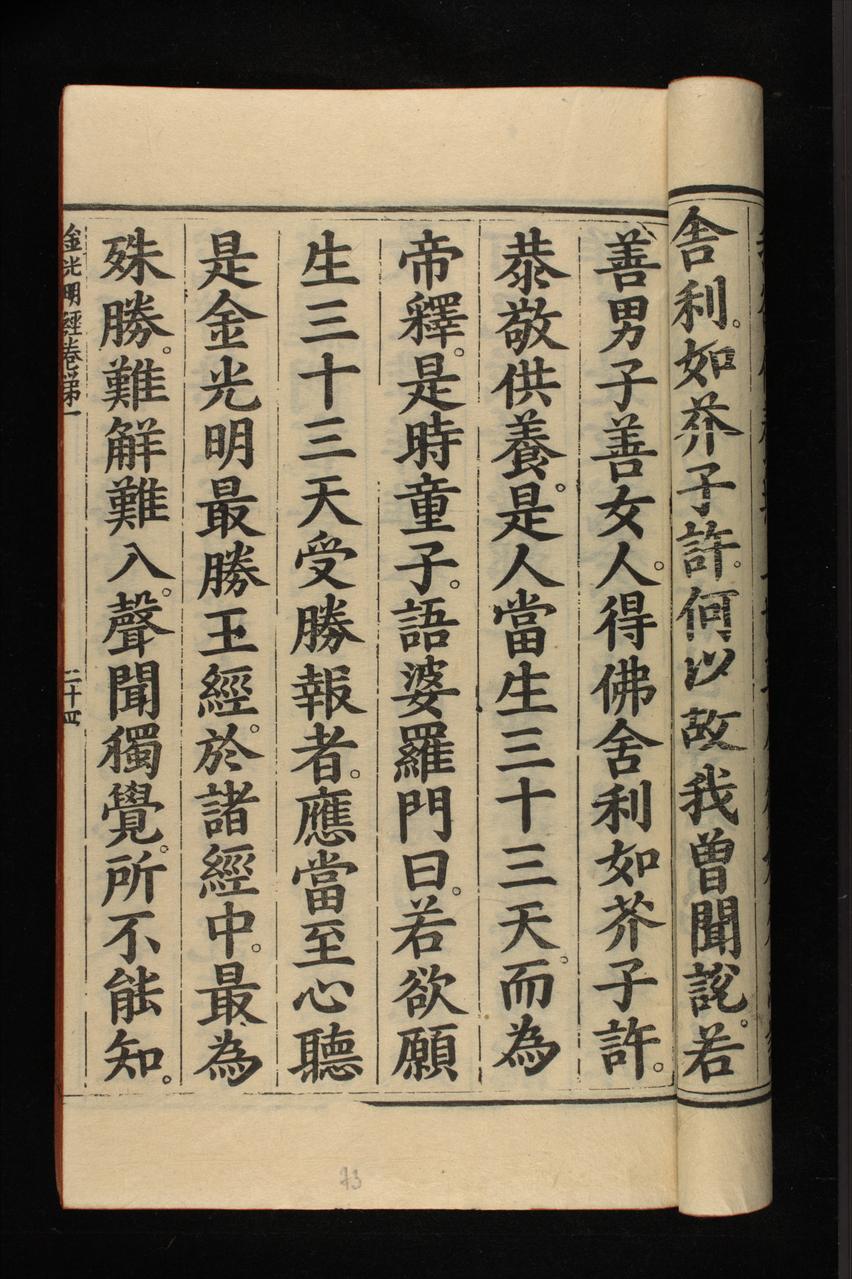 舍利。如芥子許。何以故我曾聞說。若
善男子善女人。得佛舍利如芥子許。
恭敬供養。是人當生三十三天。而為
帝釋。是時童子。語婆羅門曰。若欲願
生三十三天受勝報者。應當至心聽
是金光明最勝王經。於諸經中。最為
殊勝。難解難入。聲聞獨覺。所不能知。
金光明經卷第一
二十四
73